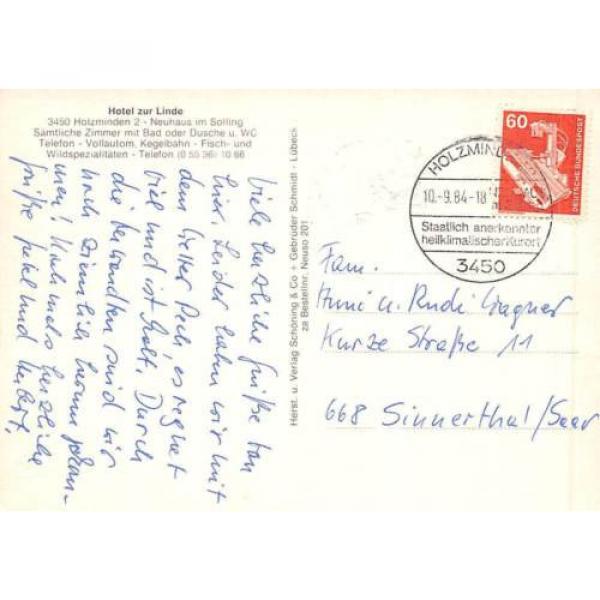 Hotel zur Linde
3450 Holzminden 2 - Neuhaus im Solling
Sämtliche Zimmer mit Bad oder Dusche u. WC
Telefon - Vollautom. Kegelbahn - Fisch- und
Wildspezialitäten - Telefon (0 55 36) 10 66
Viele herzliche Grüße von
hier. Leider haben wir mit
dem Wetter Pech, es regnet
viel und ist kalt. Durch
die Verwandten sind wir
noch ziemlich herum gekom-
men! Nochmals herzliche
Grüße
und
Herbert.
Herst. u. Verlag Schöning & Co + Gebrüder Schmidt - Lübeck
za Bestellnr. Neuso 201
60
DEUTSCHE BUNDESPOST
HOLZMIND
10.-9.84-18
Staatlich anerkannter
heilklimatischer Kurort
3450
Fam.
Anni u. Rudi Wagner
Kurze Straße 11
668 Sinnerthal/Saar